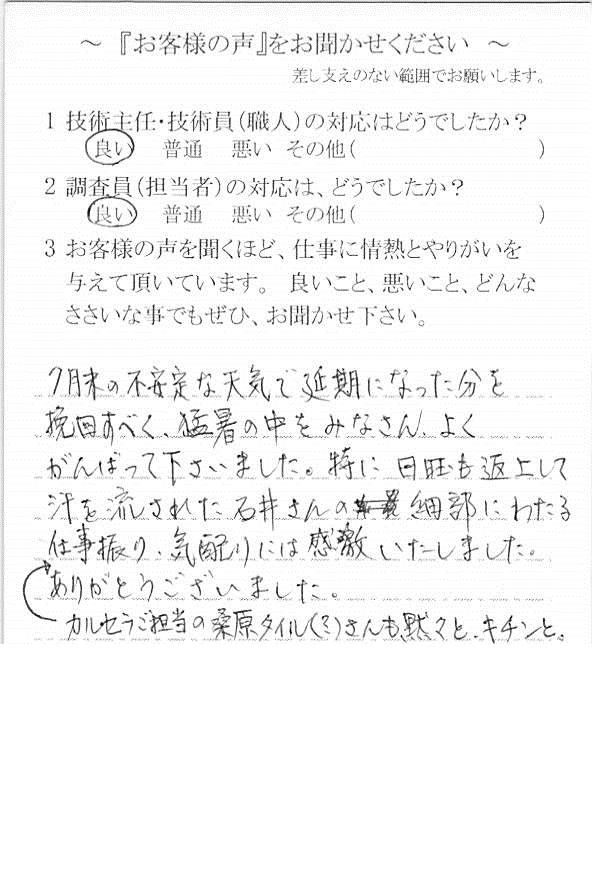 ～ 『お客様の声』をお聞かせください ～
差し支えのない範囲でお願いします。
1 技術主任・技術員（職人）の対応はどうでしたか？
良い 普通 悪い その他（ ）
2 調査員（担当者）の対応は、どうでしたか？
良い 普通 悪い その他（ ）
3 お客様の声を聞くほど、仕事に情熱とやりがいを
与えて頂いています。 良いこと、悪いこと、どんな
ささいな事でもぜひ、お聞かせ下さい。
7月末の不安定な天気で延期になった分を
挽回すべく、猛暑の中をみなさん、よく
がんばって下さいました。特に日旺も返上して
汗を流された石井さんの細部にわたる
仕事振り、気配りには感激いたしました。
ありがとうございました。
カルセラご担当の桑原タイル(ミ)さんも黙々と、キチンと、